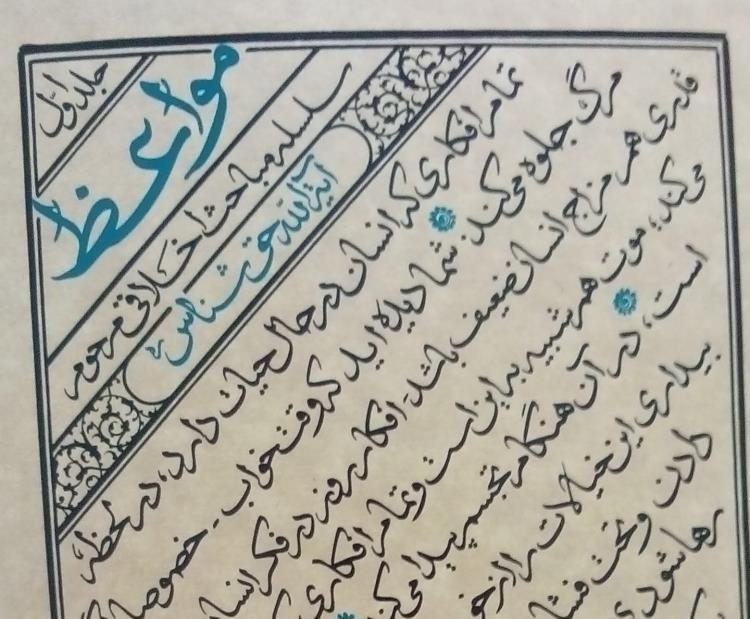 جلد اول
مواعظ
سلسله مباحث اخلاقی مرحوم
آیة الله حق شناس
تمام افکاری که انسان در حال حیات دارد، در لحظه
مرگ جلوه می‌کند. شما دیده اید که وقت خواب - خصوصاً
قدری هم مزاج انسان ضعیف باشد - افکار روز در فکر انسان
می‌کند؛ موت هم شبیه به این است و تمام افکاری که
است، در آن هنگام تجسم پیدا می‌کند
بیداری این خیالات را از خود
دادن و تحت فشار
رها شود